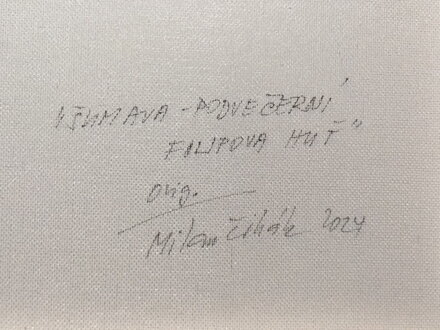 "ŠUMAVA - PODVEČERNÍ
FILIPOVA HUŤ"
Orig.
Milan Čihák 2024